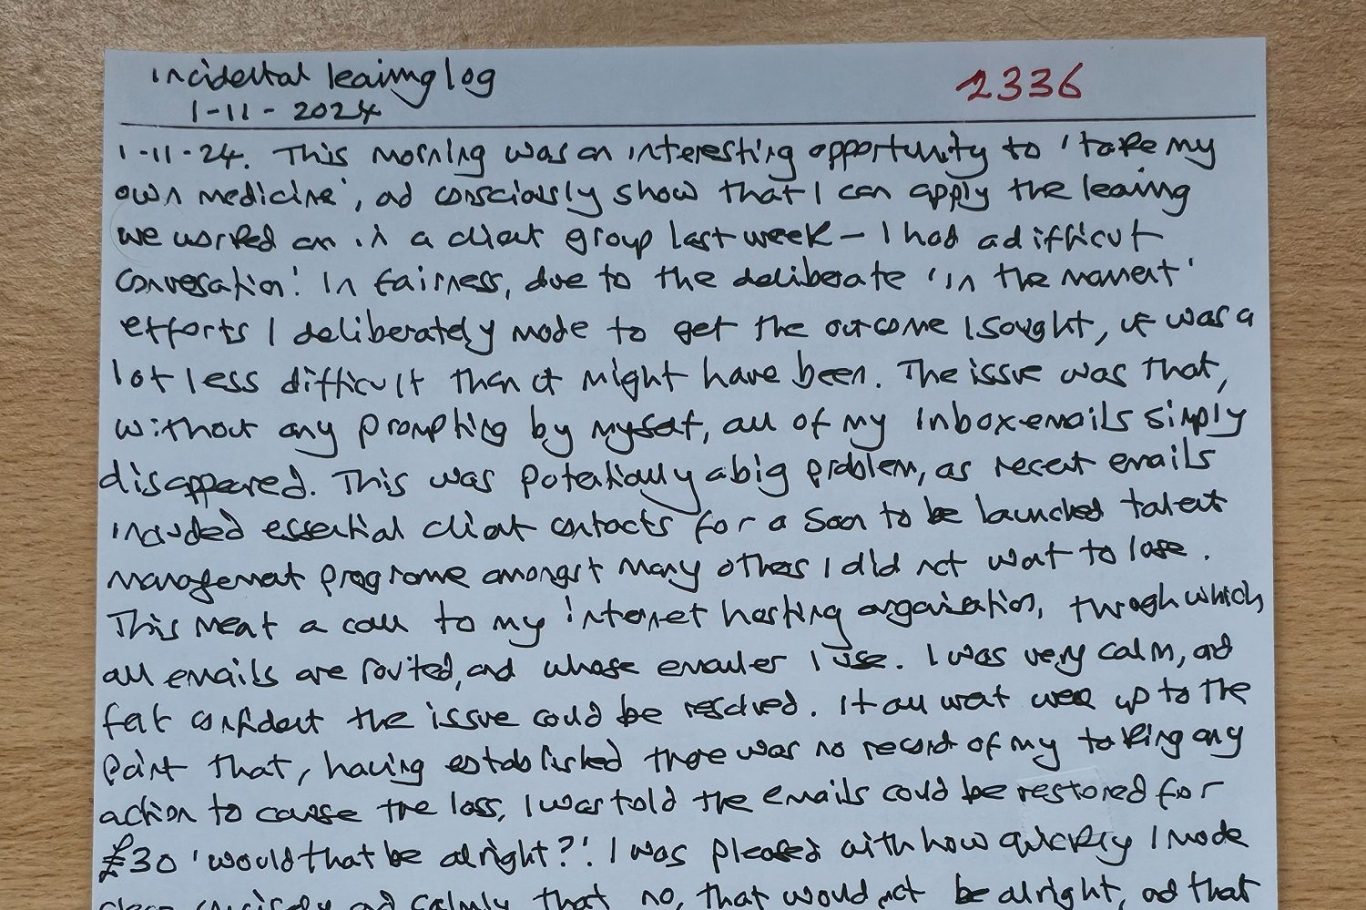 incidental learning log
2336
1-11-2024
1-11-24. This morning was an interesting opportunity to 'take my
own medicine', ad consciously show that I can apply the learning
we worked on in a client group last week – I had a difficult
conversation! In fairness, due to the deliberate 'in the moment'
efforts I deliberately made to get the outcome I sought, it was a
lot less difficult than it might have been. The issue was that,
without any prompting by myself, all of my inbox emails simply
disappeared. This was potentially a big problem, as recent emails
included essential client contacts for a soon to be launched talent
management programe amongst many others I did not want to lose.
This meant a call to my internet hosting organisation, through which
all emails are routed, and whose emailer I use. I was very calm, ad
felt confident the issue could be resolved. It all went well up to the
point that, having established there was no record of my taking any
action to cause the loss, I was told the emails could be restored for
£30 'would that be alright?'. I was pleased with how quickly I made
clear, concisely and calmly that no, that would not be alright, ad that